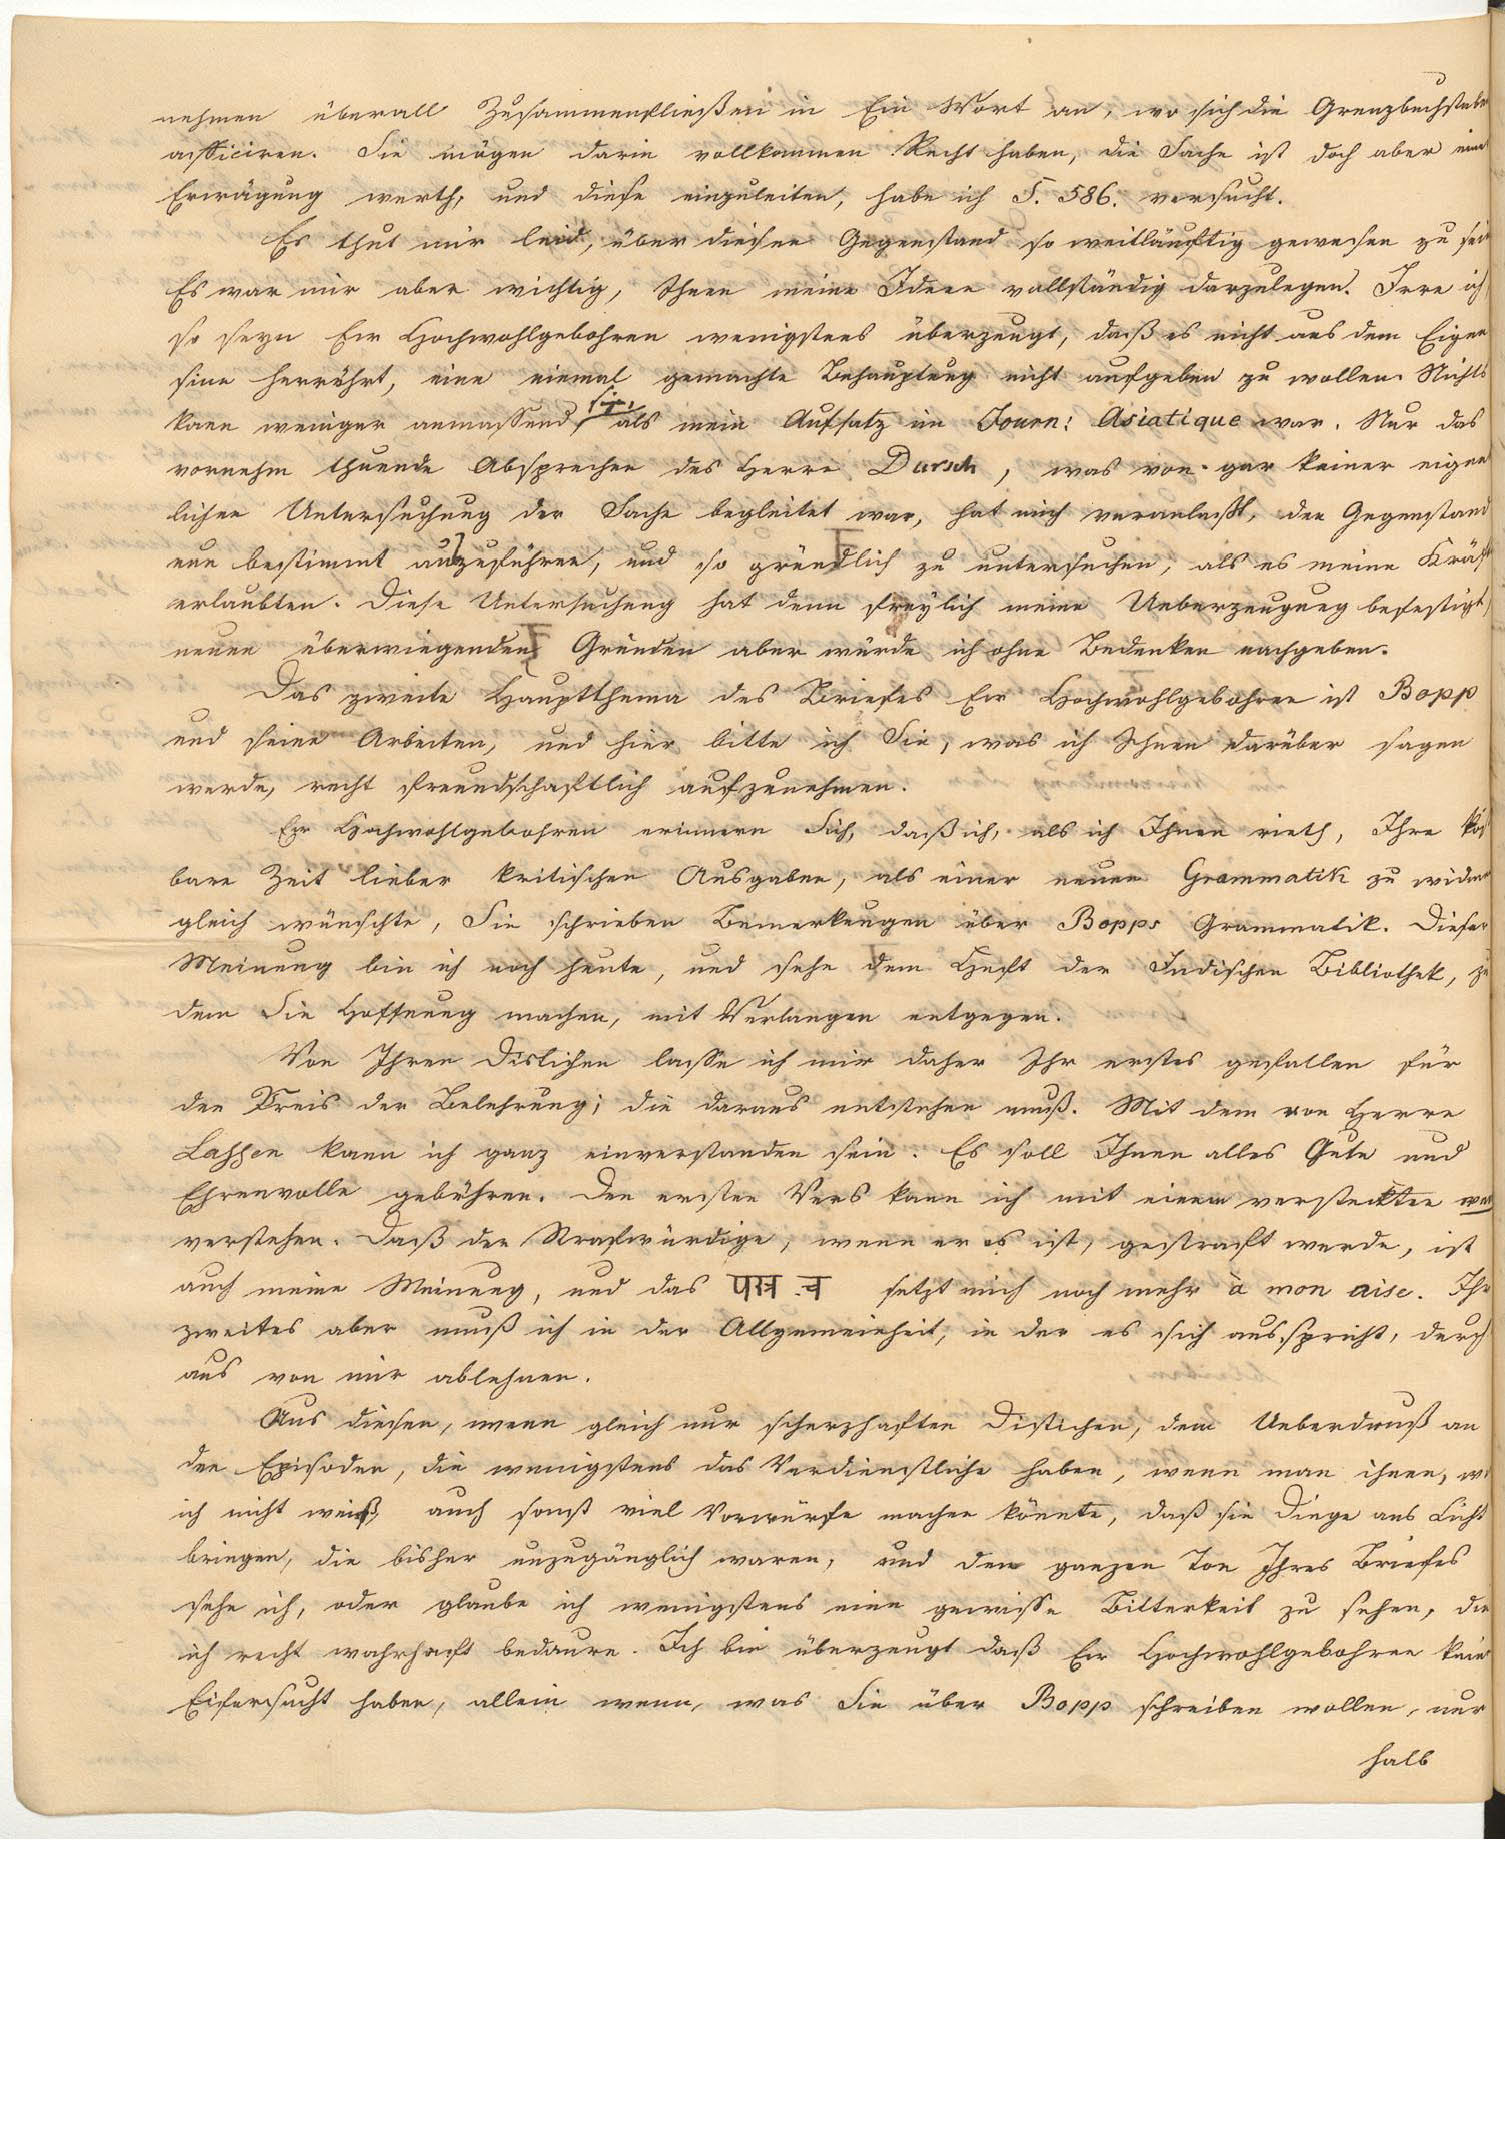 nehmen überall Zusammenfließen in Ein Wort an, wo sich die Grenzbuchstaben
afficiren. Sie mögen darin vollkommen Recht haben, die Sache ist doch aber eine
Erwägung werth, und diese einzuleiten, habe ich S. 586. versucht.
Es thut mir leid, über diesen Gegenstand so weitläuftig gewesen zu sein
Es war mir aber wichtig, Ihnen meine Ideen vollständig darzulegen. Irre ich,
so seyn Ew Hochwohlgebohren wenigstens überzeugt, daß es nicht aus dem Eigen
sinn herrührt, eine einmal gemachte Behauptung nicht aufgeben zu wollen. Nichts
kann weniger anmassend als mein Aufsatz im Journ: Asiatique war. Nur das
vornehm thuende Absprechen des Herrn Dursch, was von gar keiner eigen
lichen Untersuchung der Sache begleitet war, hat mich veranlaßt, den Gegenstand
nun bestimmt auszuführen, und so gründlich zu untersuchen, als es meine Kräfte
erlaubten. Diese Untersuchung hat denn freylich meine Ueberzeugung befestigt,
neuen überwiegenden Gründen aber würde ich ohne Bedenken nachgeben.
Das zweite Hauptthema des Briefes Ew Hochwohlgebohren ist Bopp
und seine Arbeiten, und hier bitte ich Sie, was ich Ihnen darüber sagen
werde, recht freundschaftlich aufzunehmen.
Ew Hochwohlgebohren erinnern Sich, daß ich, als ich Ihnen rieth, Ihre kost
bare Zeit lieber kritischen Ausgaben, als einer neuen Grammatik zu widmen
gleich wünschte, Sie schrieben Bemerkungen über Bopps Grammatik. Dieser
Meinung bin ich noch heute, und sehe dem Heft der Indischen Bibliothek, zu
dem Sie Hoffnung machen, mit Verlangen entgegen.
Von Ihren Distichen lasse ich mir daher Ihr erstes gefallen für
den Preis der Belehrung, die daraus entstehen muß. Mit dem von Herrn
Lassen kann ich ganz einverstanden sein. Es soll Ihnen alles Gute und
Ehrenvolle gebühren. Den ersten Vers kann ich mit einem versteckten wenn
verstehen. Daß der Strafwürdige, wenn er es ist, gestraft werde, ist
auch meine Meinung, und das यत्र च setzt mich noch mehr à mon aise. Ihr
zweites aber muß ich in der Allgemeinheit, in der es sich ausspricht, durch
aus von mir ablehnen.
Aus diesen, wenn gleich nur scherzhaften Distichen, dem Ueberdruß an
den Episoden, die wenigstens das Verdienstliche haben, wenn man ihnen, was
ich nicht weiß, auch sonst viel Vorwürfe machen könnte, daß sie Dinge ans Licht
bringen, die bisher unzugänglich waren, und dem ganzen Ton Ihres Briefes
sehe ich, oder glaube ich wenigstens eine gewisse Bitterkeit zu sehen, die
ich recht wahrhaft bedaure. Ich bin überzeugt daß Ew Hochwohlgebohren keine
Eifersucht haben, allein wenn, was Sie über Bopp schreiben wollen, nur
halb